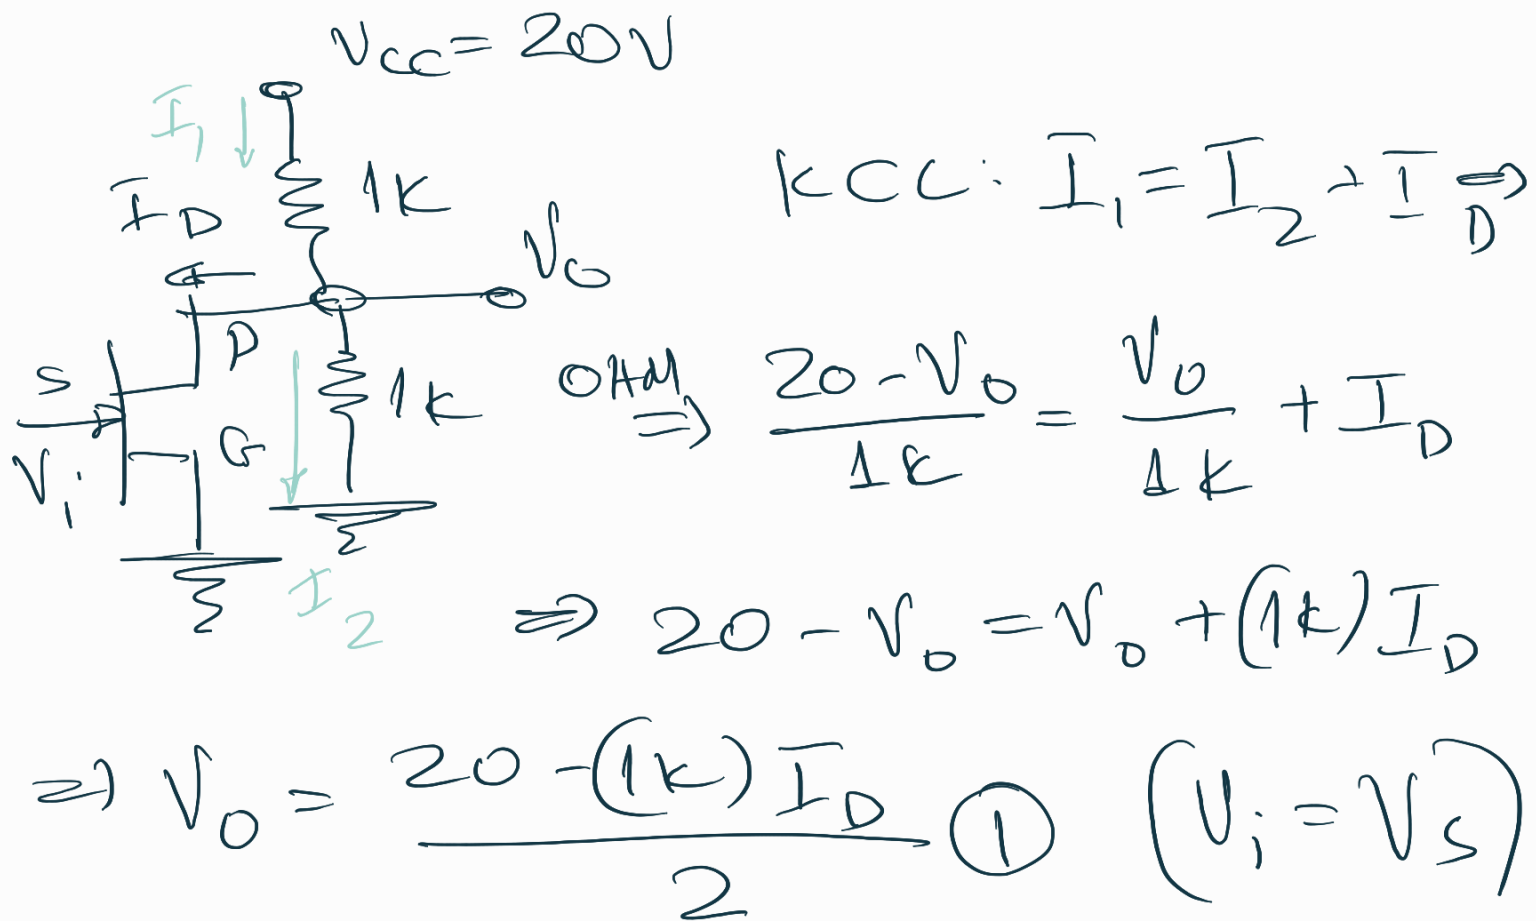 V_CC = 20V
I_1
1K
I_D
V_O
D
S
1K
V_i
G
I_2
KCC: I_1 = I_2 + I_D ⇒
OHM ⇒ (20 - V_O)/1K = V_O/1K + I_D
⇒ 20 - V_O = V_O + (1K) I_D
⇒ V_O = (20 - (1K) I_D)/2 ① (V_i = V_S)